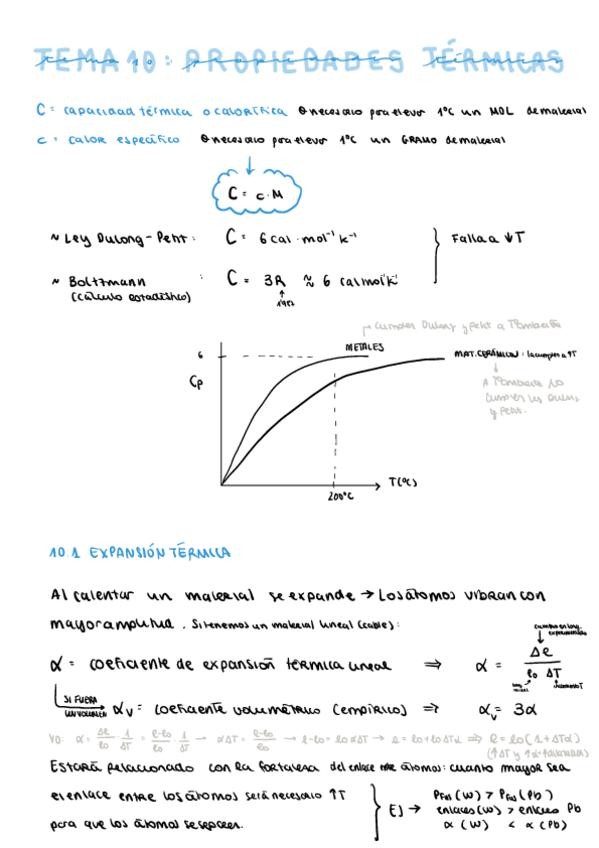 TEMA 10: PROPIEDADES TÉRMICAS
C = capacidad térmica o calorífica Q necesario para elevar 1ºC un MOL de material
c = calor específico Q necesario para elevar 1ºC un GRAMO de material
C = c·M
~ Ley Dulong-Petit: C = 6 cal·mol⁻¹ K⁻¹
Falla a ↓T
~ Boltzmann : C = 3R ≈ 6 cal mol⁻¹ K⁻¹
(cálculo estadístico)
cumplen Dulong y Petit a Tªambiente
METALES
6
MAT. CERÁMICOS: la cumplen a ↑T
Cp
A Tªambiente no
cumplen ley Dulong
y Petit.
T(ºC)
200ºC
10.1 EXPANSIÓN TÉRMICA
Al calentar un material se expande → Los átomos vibran con
mayor amplitud. Si tenemos un material lineal (cable):
α = coeficiente de expansión térmica lineal ⇒ α = Δl / l₀ ΔT
SI FUERA
UN VOLUMEN
αᵥ = coeficiente volumétrico (empírico) ⇒ αᵥ = 3α
α = Δl/l₀ · 1/ΔT = l-l₀/l₀ · 1/ΔT → αΔT = l-l₀/l₀ → l-l₀ = l₀αΔT → l = l₀+l₀ΔTα ⇒ l = l₀(1+ΔTα)
Estará relacionado con la fortaleza del enlace entre átomos: cuanto mayor sea
el enlace entre los átomos será necesario ↑T
para que los átomos se separen.
Ej → Pfus(W) > Pfus(Pb)
enlaces(W) > enlaces Pb
α(W) < α(Pb)